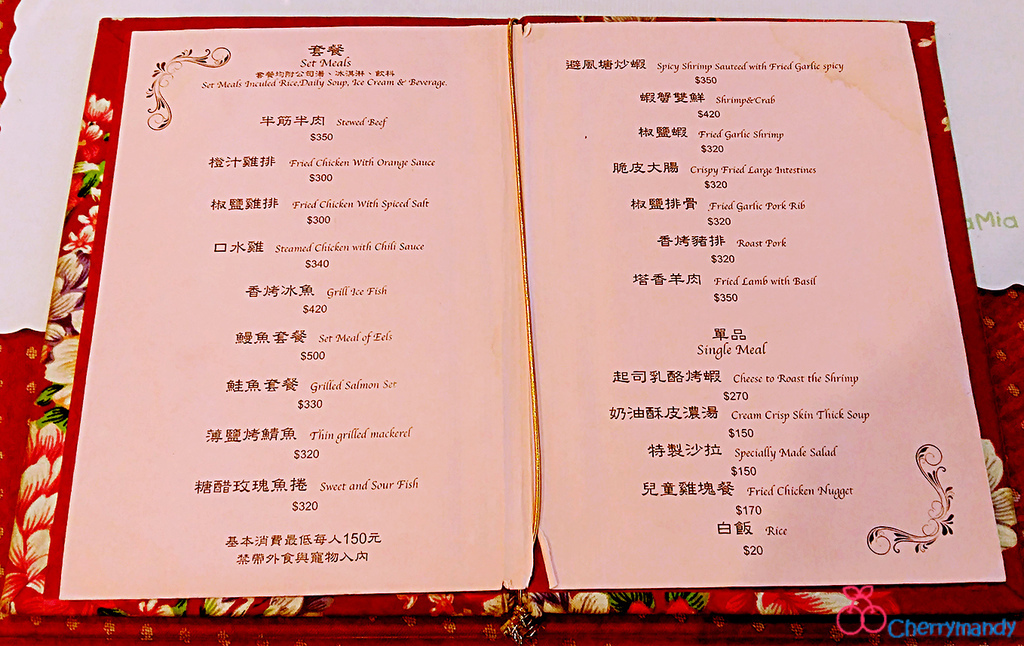 套餐
Set Meals
套餐均附公司湯、冰淇淋、飲料
Set Meals Inculed Rice,Daily Soup, Ice Cream & Beverage.
半筋半肉 Stewed Beef
$350
橙汁雞排 Fried Chicken With Orange Sauce
$300
椒鹽雞排 Fried Chicken With Spiced Salt
$300
口水雞 Steamed Chicken with Chili Sauce
$340
香烤冰魚 Grill Ice Fish
$420
鰻魚套餐 Set Meal of Eels
$500
鮭魚套餐 Grilled Salmon Set
$330
薄鹽烤鯖魚 Thin grilled mackerel
$320
糖醋玫瑰魚捲 Sweet and Sour Fish
$320
基本消費最低每人150元
禁帶外食與寵物入內
避風塘炒蝦 Spicy Shrimp Sauteed with Fried Garlic spicy
$350
蝦蟹雙鮮 Shrimp&Crab
$420
椒鹽蝦 Fried Garlic Shrimp
$320
脆皮大腸 Crispy Fried Large Intestines
$320
椒鹽排骨 Fried Garlic Pork Rib
$320
香烤豬排 Roast Pork
$320
塔香羊肉 Fried Lamb with Basil
$350
單品
Single Meal
起司乳酪烤蝦 Cheese to Roast the Shrimp
$270
奶油酥皮濃湯 Cream Crisp Skin Thick Soup
$150
特製沙拉 Specially Made Salad
$150
兒童雞塊餐 Fried Chicken Nugget
$170
白飯 Rice
$20
aMia
Cherrymandy